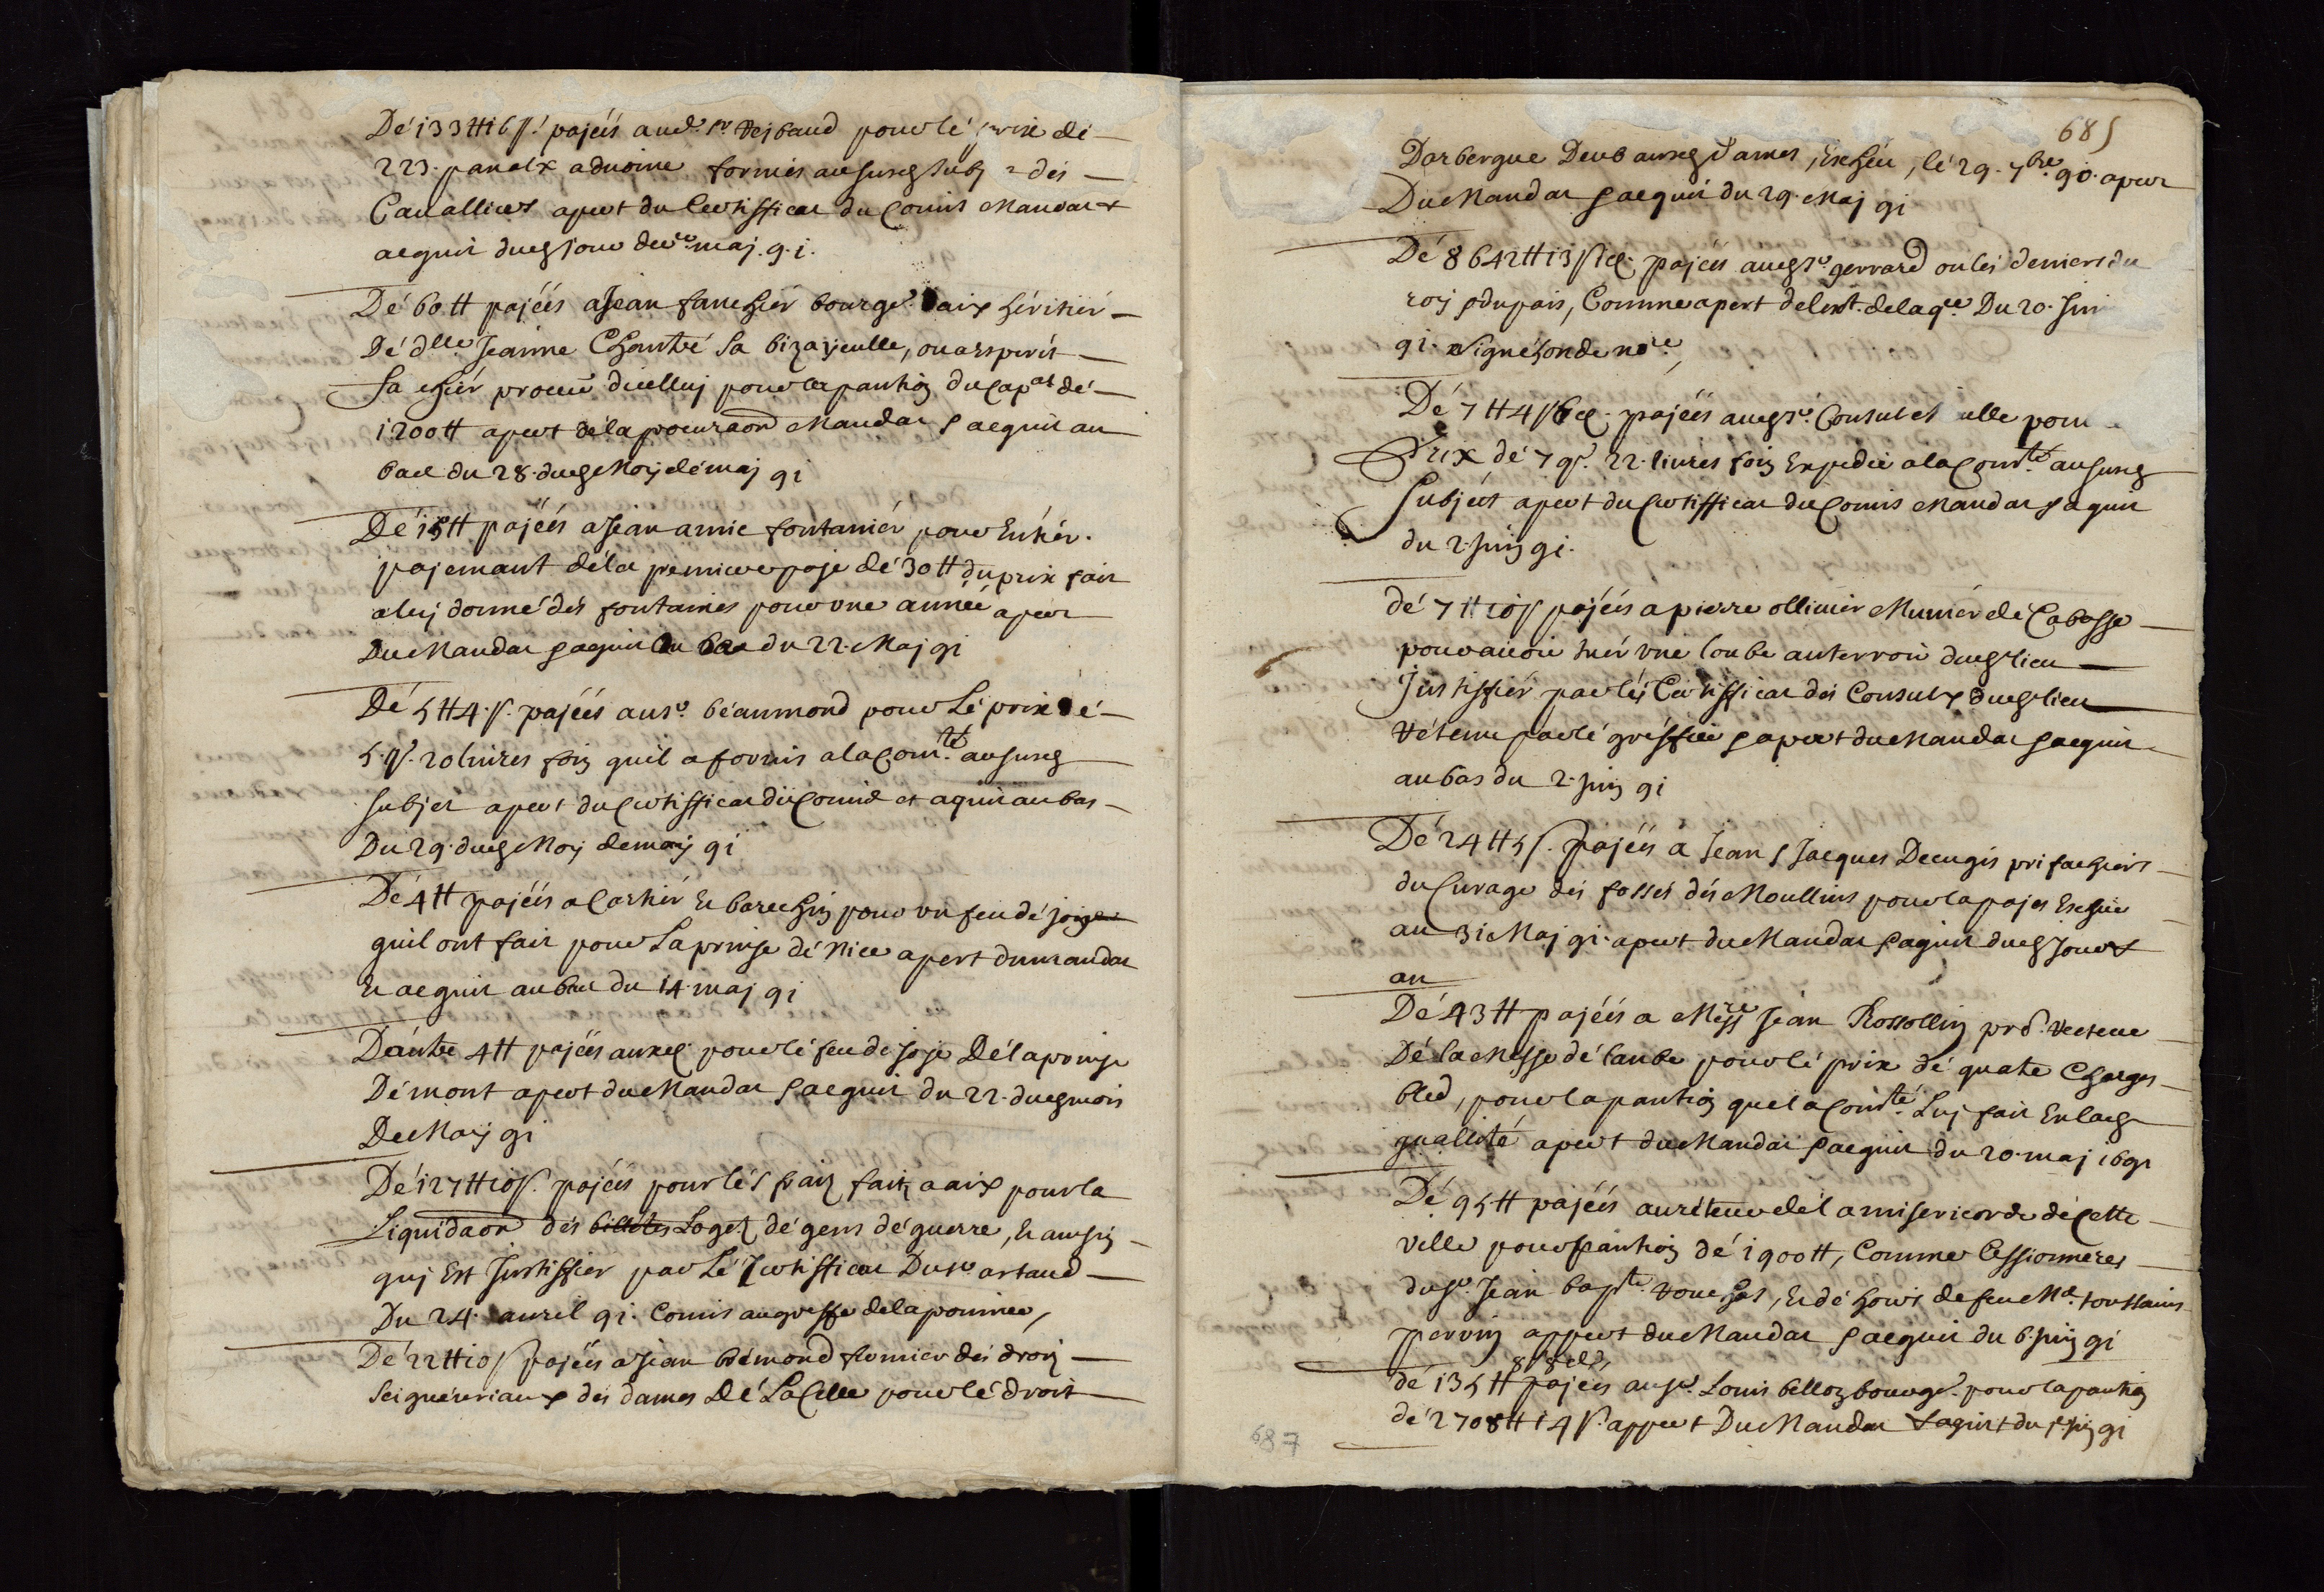 Dé 133 tt 16 s. pajéés aud. sr Rejbaud pour lé prix dé
223 panalx advoine formis au susd. subj = dés
Cavalliers apert du Certifficat du Comis Mandat &
acquit dud. jour de maj 91.
Dé 60 tt pajéés a Jean fauchiér bourgs. daix héritiér
Dé dlle Jeanne Chautré sa bizajeulle,
sa chiér procur. dicelluj pour la pantion du capal dé
1200 tt apert déla procuraon Mandat & acquit au
bas du 28 dud. Moy dé maj 91
Dé 15 tt pajéés a Jean amic fontaniér pour Entiér
pajemant déla premiere paje dé 30 tt du prix fait
a luj donné dés fontaines pour une année apert
Du Mandat & acquit du 22 Maj 91
Dé 5 tt 4 s. pajéés au sr. béaumond pour Lé prix dé
5 q. 20 livres foin quil a fornis a la Comté. au susd.
subjet apert du Certifficat du Comis et aquit au bas
Du 29 dud. Moy de maj 91
Dé 4 tt pajéés a Cartiér & barechin pour un feu dé joje
quil ont fait pour La prinse dé Nice apert du mandat
& acquit au bas du 14 maj 91
Dautre 4 tt pajéés auxd. pour lé feu de joje Déla prinse
Dé mont apert du Mandat & acquit du 22 dud. mois
De Maj 91
Dé 127 tt 10 s. pajéés pour lés fraiz faitz a aix pour la
Liquidaon dés billétes Logetz dé gens dé guerre, & aussj
quj Est Justiffiér par Lé Certifficat Du sr artaud
Du 24 avril 91. Comis au greffe de la
Dé 22 tt 10 s pajéés a Jean brémond fermier dés droitz
Seigneuriaux dés dames Dé La Celle pour lé droit
685
Darbergue Deub auxd. Dames, Escheu, lé 29 7bre. 90. apert
Du Mandat & acquit du 29 Maj 91
Dé 8642 tt 13 s 1 d. pajéés aud. sr. gerrard ou lés deniers du
roj & du pais, Comme apert de lext. de la qce. Du 20 Juin
91. Signé honde nore.
Dé 7 tt 4 s 6 d. pajéés aud. sr. Consul pour
Prix dé 7 q. 22 livres foin Expedié a la Comté. au susd.
Subject apert du Certifficat du Comis Mandat & aquit
du 2 juin 91.
dé 7 tt 10 s pajéés a pierre ollivier Muniér de Cabasse
pour avoir tuér une loube au terroir dud. lieu
Justiffiér par lés Certifficat dés Consulx dud. lieu
Rétenu par lé gréffier & apert du Mandat & acquit
au bas du 2 juin 91
Dé 24 tt 5 s. pajéés a Jean & Jacques Decugis prifachiers
du Curage dés fossés dés Moullins pour la paje Escheue
au 31 Maj 91. apert du Mandat & aquit dud. Jour &
an
Dé 43 tt pajéés a Messre Jean Rossollin prb. Recteur
Dé la Messe dé laube pour lé prix dé quatre Charges
bled, pour la pantion que la Comté. Luj fait En lad.
quallité apert du Mandat & acquit du 20 maj 1691
Dé 95 tt pajéés au réteur dél a misericorde dé Cette
ville pour pantion dé 1900 tt, Comme Cessionnéres
du sr. Jean bapte. & dé hoirs de feu Me. toussains
perrin appert du Mandat & acquit du 6 juin 91
8 s 8 d
dé 135 tt pajéés au sr. Louis bellon bourgs. pour la pantion
dé 2708 tt 14 s. appert Du Mandat & aquit du juin 91
687